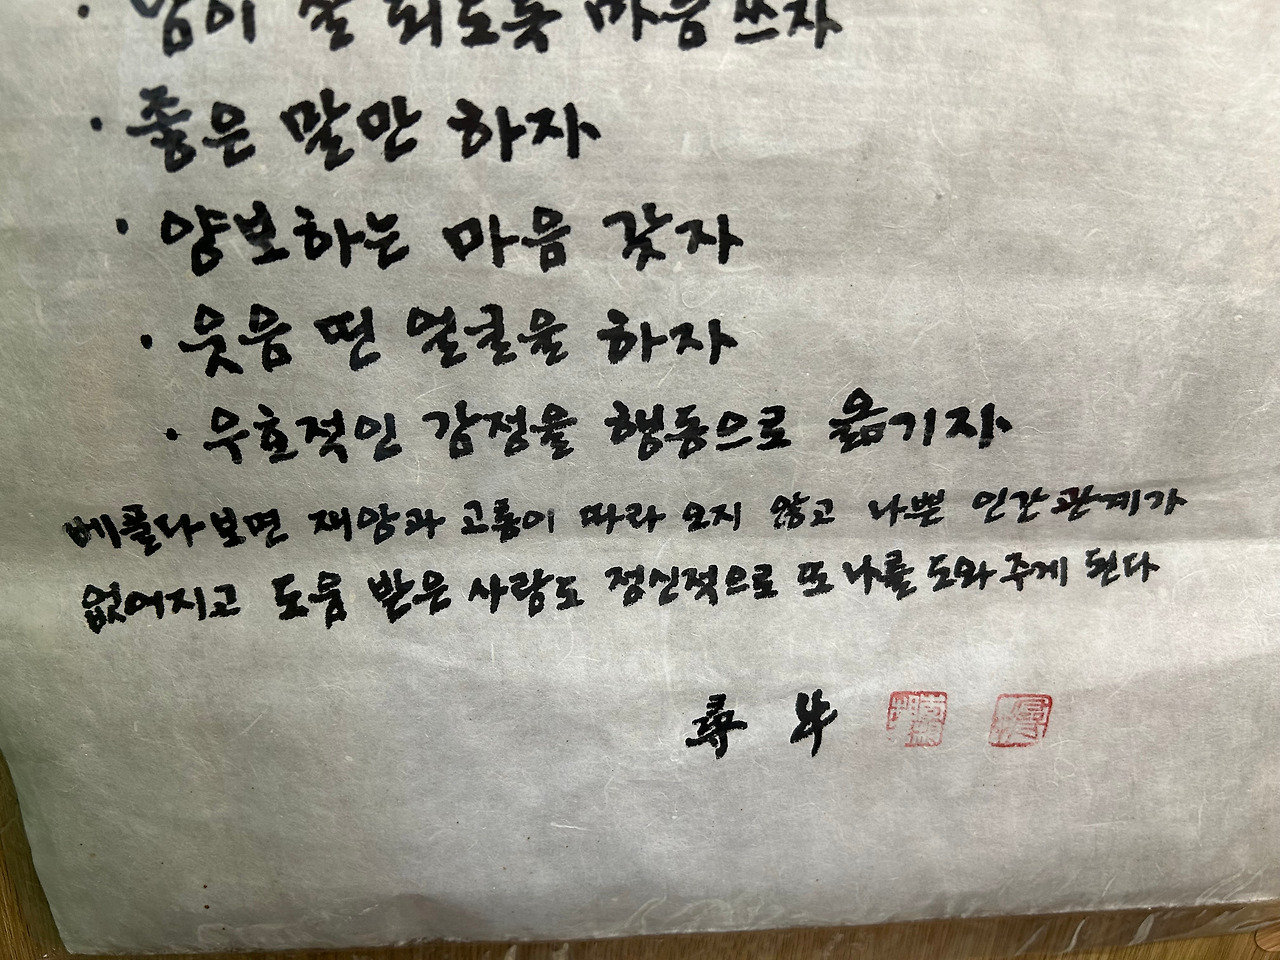 · 남이 잘 되도록 마음쓰자
· 좋은 말만 하자
· 양보하는 마음 갖자
· 웃음 띤 얼굴을 하자
· 우호적인 감정을 행동으로 옮기자
베풀다보면 재앙과 고통이 따라 오지 않고 나쁜 인간관계가
없어지고 도움 받은 사람도 정신적으로 또 나를 도와주게 된다
尋牛